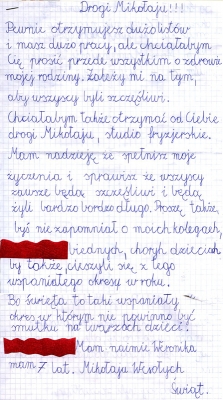 Drogi Mikołaju!!!
Pewnie otrzymujesz dużo listów
i masz dużo pracy, ale chciałabym
Cię prosić przede wszystkim o zdrowie
mojej rodziny. Zależy mi na tym,
aby wszyscy byli szczęśliwi.
Chciałabym także otrzymać od Ciebie
drogi Mikołaju, studio fryzjerskie.
Mam nadzieję, że spełnisz moje
życzenia i sprawisz że wszyscy
zawsze będą szczęśliwi i będą
żyli bardzo bardzo długo. Proszę także,
byś nie zapomniał o moich kolegach,
biednych, chorych dzieciach
by także cieszyli się z tego
wspaniałego okresy w roku.
Bo święta to taki wspaniały
okres w którym nie powinno być
smutku na twarzach dzieci!
Mam na imię Weronika
mam 7 lat. Mikołaju Wesołych
Świąt.